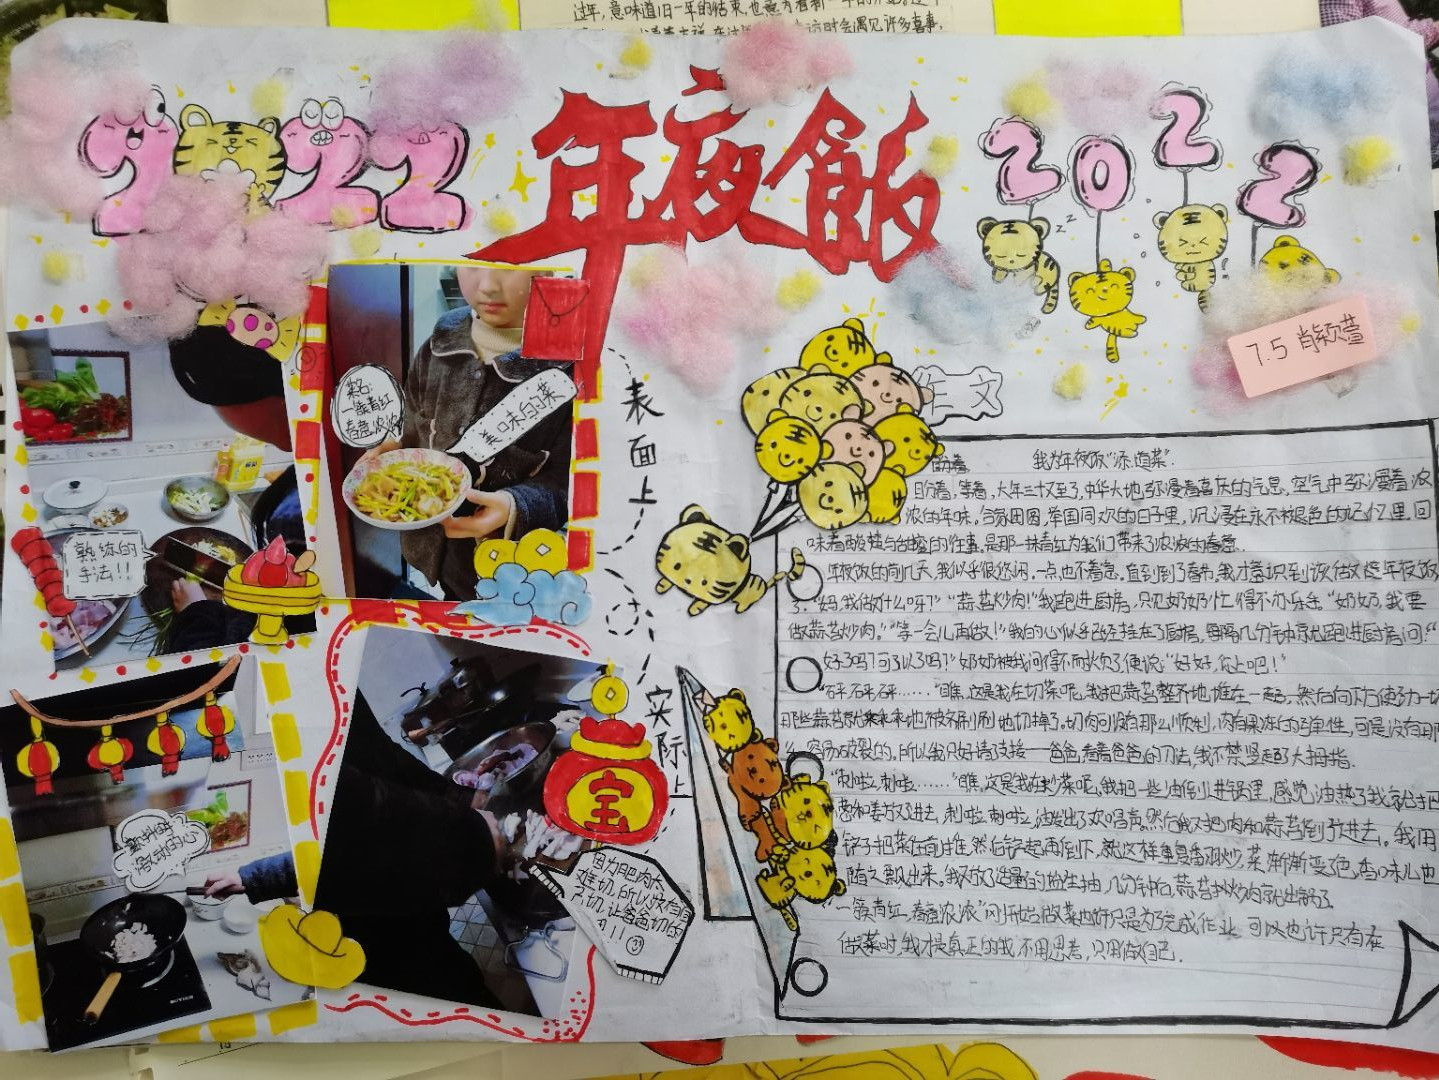 过年，意味道旧一年的结束，也意为着新一年的
时会遇见许多喜事，
2022
年夜飯
2022
7.5 肖颖萱
菜名：
一簇青红
春意浓浓
美味的菜
熟练的
手法！！
表面上
实际上
宝
因为肥肉太
难切，所以没有自
己切，让爸爸切的
！！
作文
我为年夜饭“添道菜”
盼着，等着，大年三十又到了，中华大地弥漫着喜庆的气息，空气中弥漫着浓
浓的年味。合家团圆，举国同欢的日子里，沉浸在永不被褪色的记忆里，回
味着酸甜与苦辣的往事，是那一抹青红为我们带来了浓浓的春意。
年夜饭的前几天，我似乎很悠闲，一点也不着急。直到到了春节，我才意识到该做这些年夜饭
了。“妈，我做什么呀？”“蒜苔炒肉！”我跑进厨房，只见奶奶忙得不亦乐乎“奶奶，我要
做蒜苔炒肉。”“等一会儿再做！”我的心似乎已经挂在了厨房，每隔几分钟就跑进厨房问：“
好了吗？可以了吗？”奶奶被我问得不耐烦了便说：“好好，你上吧！”
“砰砰砰……”瞧，这是我在切菜呢，我把蒜苔整齐地堆在一起，然后向下方使劲一切
那些蒜苔就 地被不刷刷地切掉了。切肉可没有那么顺利，肉有果冻的弹性，可是没有那
么容易破裂的。所以我只好请支援——爸爸，看着爸爸的刀法，我不禁竖起了大拇指。
“刺啦，刺啦……”瞧，这是我在炒菜呢，我把一些油倒进锅里，感觉油热了我就把
葱和姜放进去，刺啦刺啦，油发出了欢唱声。然后我又把肉和蒜苔倒放进去。我用
铲子把菜往前推，然后铲起再倒下，就这样重复翻炒，菜渐渐变色，香味儿也
随之飘出来。我又放了适量的盐生抽，几分钟后，蒜苔炒肉就出锅了。
“一簇青红，春意浓浓”刚开始做菜也许只是为了完成作业，可以也许只有在
做菜时，我才是真正的我，不用思考，只用做自己。